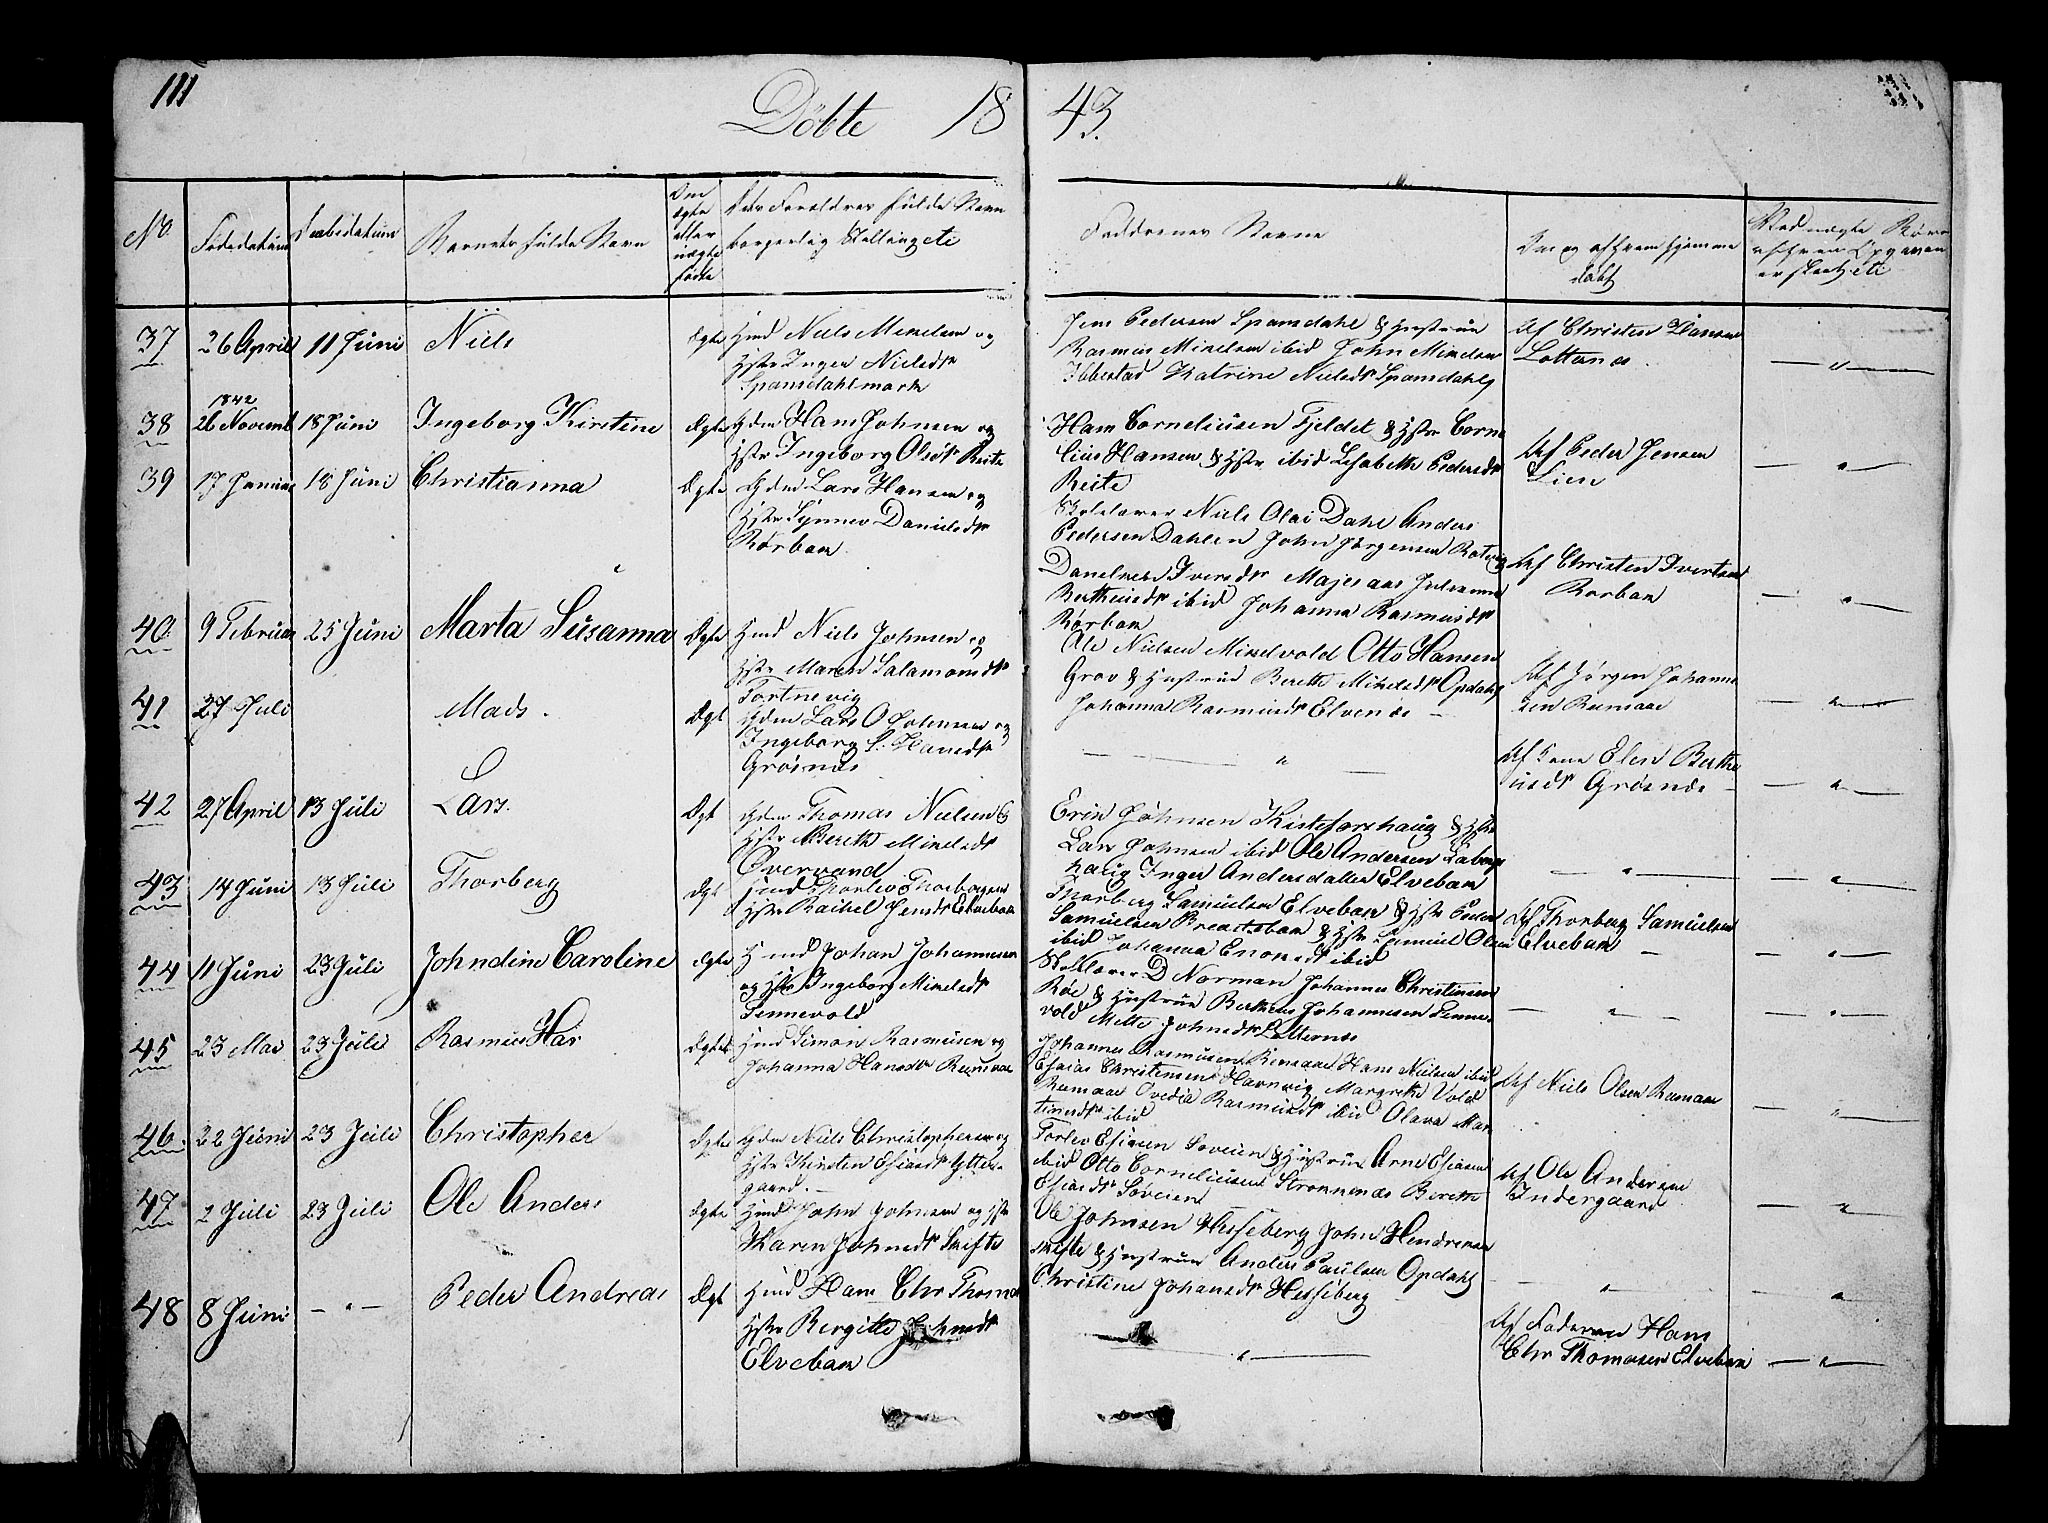 111
Döbte 18 43.
No. Födedatum Daabsdatum Barnets fulde Navn Om ægte eller uægte födte Deres Foreldres fulde Navn borgerlig Stilling etc Faddernes Navne Om og af hvem hjemme döbt
37 26 April 11 Juni Niels ægte Hmd Niels Mikelsen og
Hstr Inger Nielsdtr
Spansdahlmark
Jens Pedersen Spansdahl & Hustrue
Rasmus Mikelsen ibid John Mikelsen
Ibbestad Katrine Nielsdtr Spansdahl
Af Christen Hansen
Lotternes
— " —
1842
38 26 Novemb 18 Juni Ingeborg Kirstine ægte Gdm Hans Johnsen og
Hstr Ingeborg Olsdtr Reite
Hans Corneliusen Fjeldet & Hstr Corne
lius Hansen & Hstr ibid Lisabeth Pedersdtr
Reite
Af Peder Jensen
Lien
— " —
39 17 Januar 18 Juni Christianna ægte Gdm Lars Hansen og
Hstr Synnev Danielsdtr
Rørbak
Skolelærer Niels Olai Dahl Anders
Pedersen Dahlen John Jørgensen Rotvig
Iversdtr Majesaas
Bertheusdtr ibid Johanna Rasmusdtr
Rørbak
Af Christen Ivertsen
Rorbak
— " —
40 9 Februar 25 Juni Marta Susanna ægte Hmd Niels Johnsen og
Hstr Maren Salamonsdtr
Fortnevig
Ole Nielsen Mikelvold Otto Hansen
Grov & Hustrue Bereth Mikelsdtr Opdahl
Johanna Rasmusdtr Elvenes —
Af Jørgen Johanne
sen Rumaae
— " —
41 27 Juli Mads. ægt Gdm Lars O Johnsen og
Ingeborg S. Hansdtr
Grøsnes
— " —
Af Kone Elen Berthe
usdtr Grøsnes —
— " —
42 27 April 13 Juli Lars. ægt Gdm Thomas Nielsen &
Hstr Bereth Mikelsdtr
Övervand
Erik Johnsen Kisteforshaug & Hstr
Lars Johnsen ibid Ole Andersen Laberg
haug Inger Andersdatter Elvebak
— " —
— " —
43 14 Juni 13 Juli Thorberg ægt Hmd Thorlev Thorbergsen
Hstr Rachel Jensdtr Elvebak
Thorberg Samuelsen Elvebak & Hstr Peder
Samuelsen Breistbak & Hstr Samuel Olsen
ibid Johanna Enoksdtr ibid
Af Thorberg Samuelsen
Elvebak —
— " —
44 11 Juni 23 Juli Johndine Caroline ægte Hmd Johan Johannesen
og Hstr Ingeborg Mikelsdtr
Tennevold
Skolelærer D Norman Johannes Christensen
Röe & Hustrue Bertheus Johannesen Tenne
vold Mette Johnsdtr Lotternes
— " —
— " —
45 23 Mai 23 Juli Rasmus ægte Hmd Simon Rasmusen og
Johanna Hansdtr Rumaae
Johannes Rasmusen Rumaae Hans Nielsen ibid
Esaias Christensen Havnvig Margrethe Vold
Rumaae Ovedia Rasmusdtr ibid Olava Mar
tinsdtr ibid
Af Niels Olsen Rumaae
— " —
46. 22 Juni 23 Juli Christopher ægte Gdm Niels Christophersen og
Hstr Kirsten Esiasdtr Ytter-
gaard.—
Torlev Esiasen Soveien & Hustrue Arne Esiasen
ibid Otto Corneliusen Strømnes Bereth
Esiasdtr Soveien
Af Ole Andersen
Indergaard
— " —
47 2 Juli 23 Juli Ole Anders ægte Hmd John Johnsen og Hstr
Karen Johnsdtr Skifte
Ole Johnsen Hesseberg John Hendriksen
Skifte & Hustrue Anders Paulsen Opdahl
Christine Johansdtr Hesseberg
— " —
— " —
48 8 Juni — " — Peder Andreas ægt Hmd Hans Chr Thomas
Hstr Bergitte Johnsdtr
Elvebak
— " —
Af Faderen Hans
Chr Thomasen Elvebak
— " —